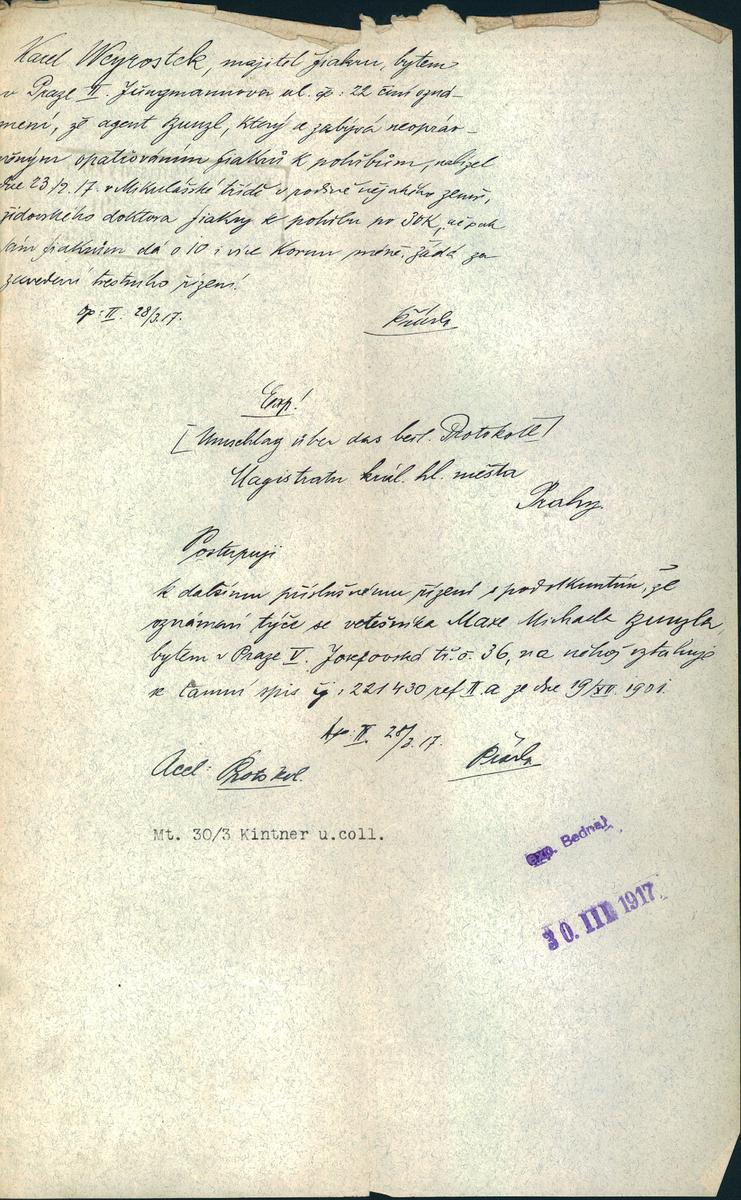 Karel Weyrostek, majitel fiakru, bytem
v Praze II. Jungmannova ul. čp: 22 činí ozná-
mení, že agent Bunzl, který se zabývá neopráv-
něným opatřováním fiakrů k pohřbům, nabízel
dne 23/2. 17. v Mikulášské třídě v rodině nějakého zemř.
židovského doktora fiakry k pohřbu po 30K, než pak
sám fiakrům dá o 10 i více Korun méně. Žádá za
zavedení trestního řízení.
Op: II. 28/3.17.
Exp!
[Umschlag über das beil. Protokoll]
Magistrátu král. hl. města
Prahy.
Postupuji
k dalšímu příslušnému řízení s podotknutím, že
oznámení týče se vetešníka Maxe Michaela Bunzla,
bytem v Praze V. Josefovská tř. č. 36, na něhož vztahuje
se tamní spis čj: 221430 ref II.a ze dne 19/XII. 1901.
Op: II. 28/3.17.
Accl: Protokol.
Mt. 30/3 Kintner u.coll.
Exp. Bednář
30. III 1917